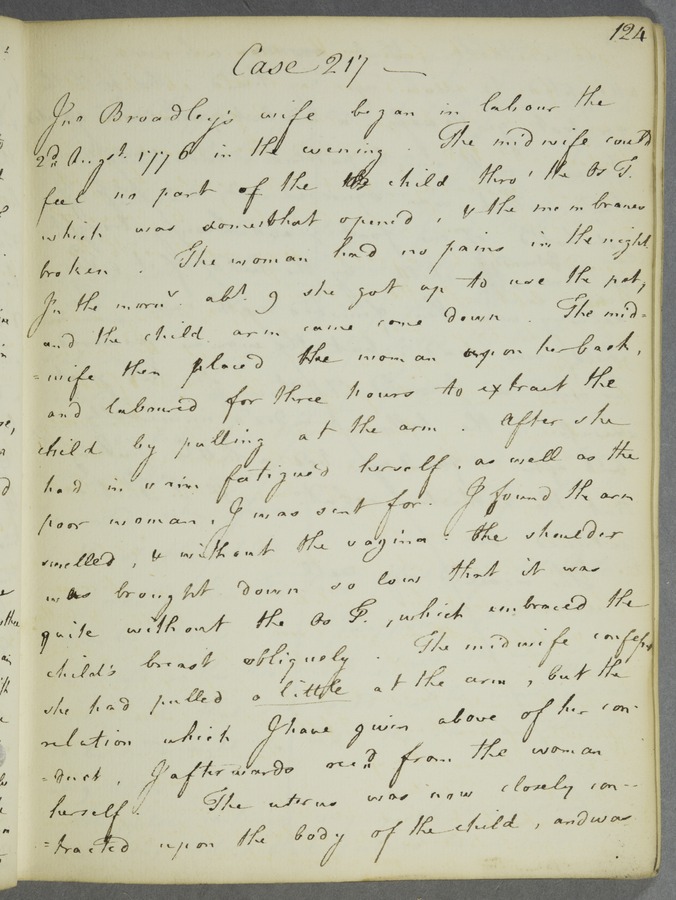 124
Case 217 —
Jno Broadley's wife began in labour the
2d. Augst. 1776 in the evening. The midwife could
feel no part of the child thro' the Os T.
which was somewhat opened, & the membranes
broken. The woman had no pains in the night.
In the morng. abt. 9 she got up to use the pot,
and the child arm came come down. The mid=
=wife then placed the woman upon her back,
and laboured for three hours to extract the
child by pulling at the arm. After she
had in vain fatigued herself, as well as the
poor woman, I was sent for. I found the arm
swelled, & without the vagina: the shoulder
was brought down so low that it was
quite without the Os T., which embraced the
child's breast obliquely. The midwife confess'd
she had pulled a little at the arm, but the
relation which I have given above of her con-
=duct, I afterwards recd from the woman
herself. The uterus was now closely con-
=tracted upon the body of the child, and was